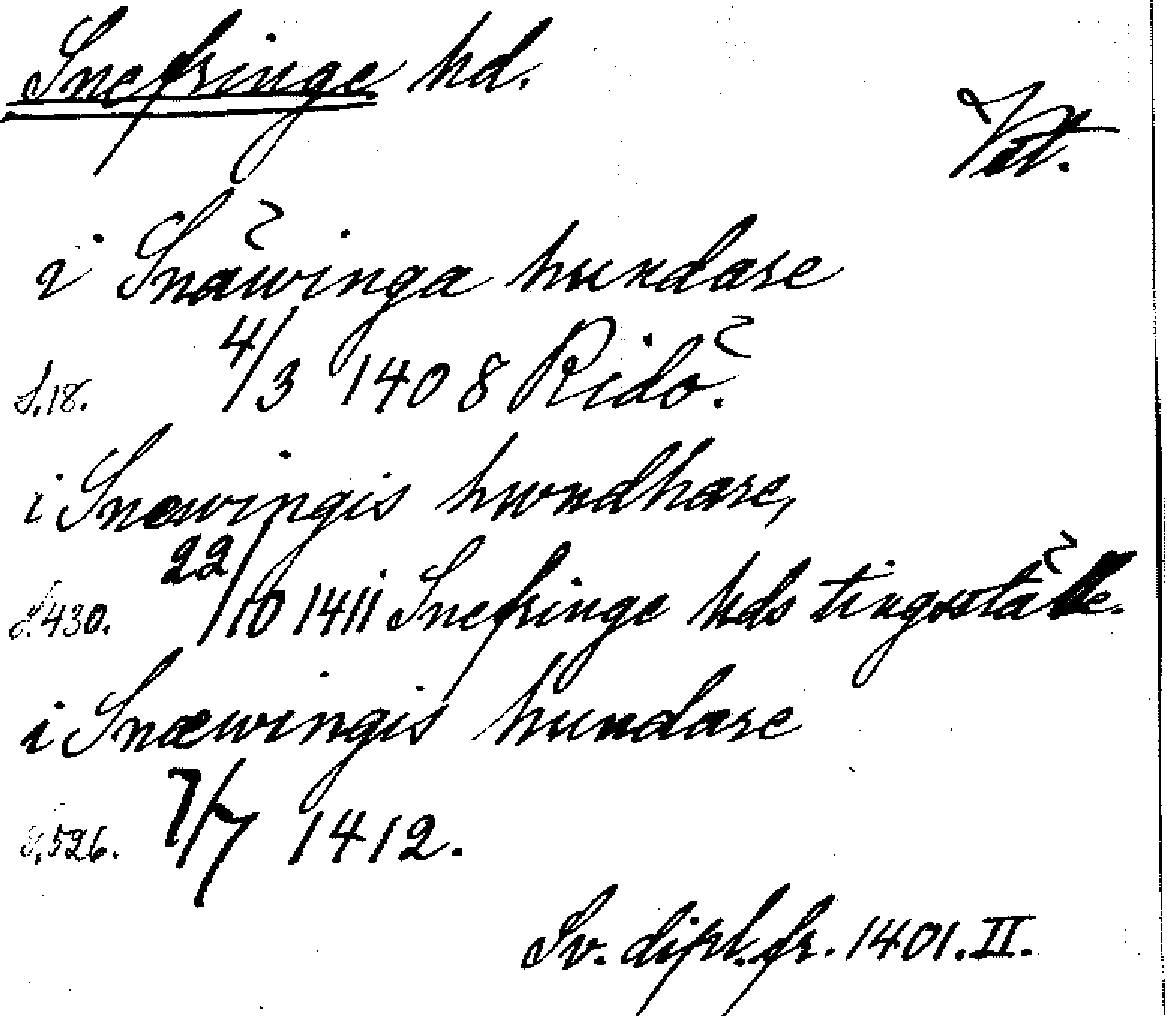 Snefringe hd.
Vst.
i Snäwinga hundare
S. 18. 4/3 1408 Ridö.
i Snæwingis hwndhære,
S. 430. 22/10 1411 Snefringe hds tingställe.
i Snæwingis hundare
S. 526. 7/7 1412.
Sv. dipl. fr. 1401. II.